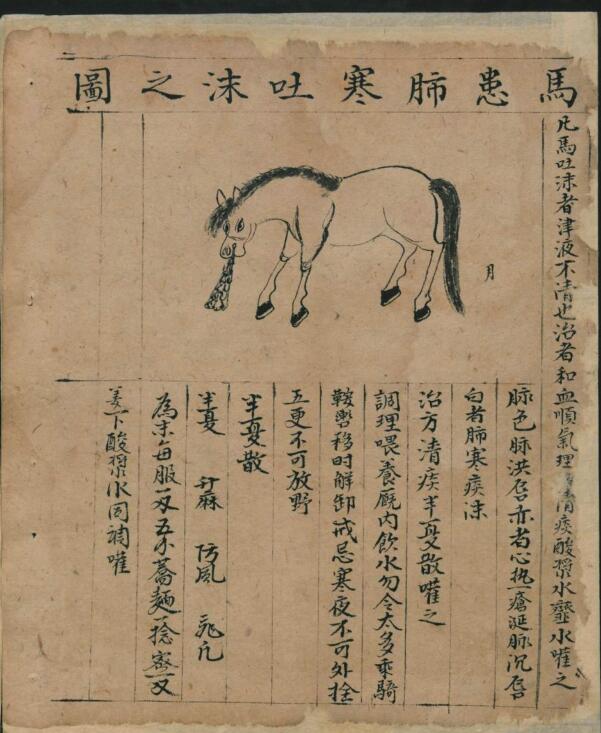 馬患肺寒吐沫之圖
凡馬吐沫者津液不清也治者和血順氣理清痰酸漿水虀水嚾之
月
脉色脉洪唇亦者心热瘡涎脉沉唇
白者肺寒痰沫
治方清痰半夏散嚾之
調理喂養廐内飲水勿令太多乘騎
鞍轡移时解卸戒忌寒夜不可外拴
五更不可放野
半夏散
半夏 升麻 防風 飛凡
為末每服一又五分蕎麵一捻蜜一又
姜下酸漿水同調嚾